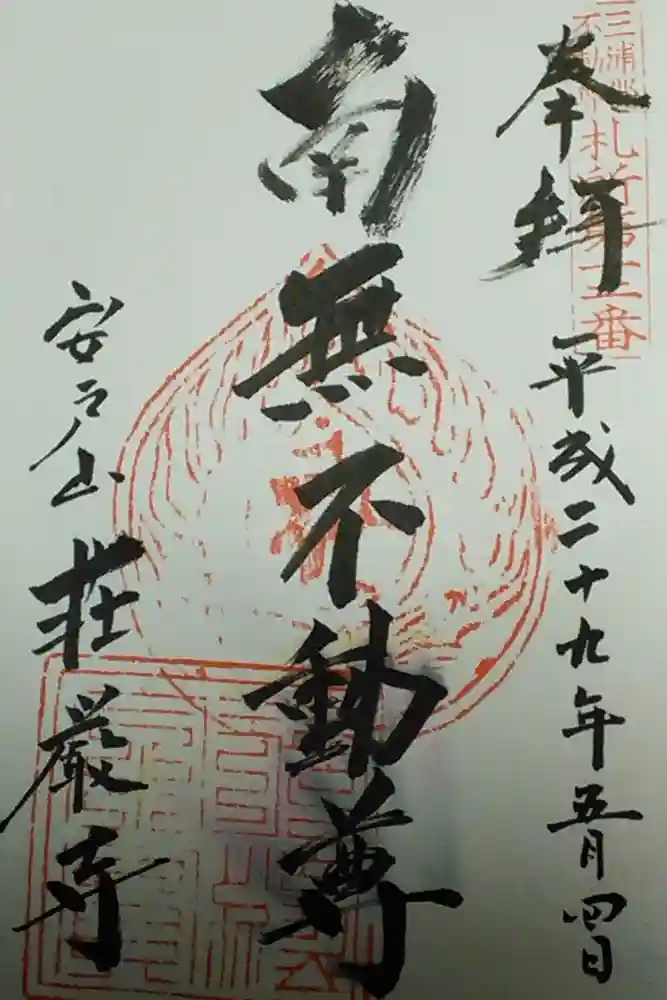 奉拝
三浦
不動
札所第
番
平成二十九年五月四日
南無不動尊
安戸山
荘厳寺